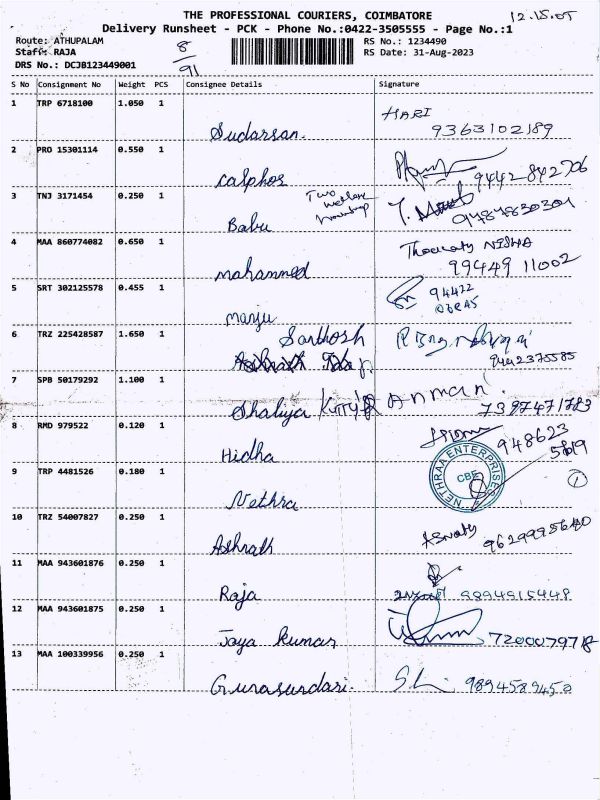 THE PROFESSIONAL COURIERS, COIMBATORE
12.15.05
Delivery Runsheet - PCK - Phone No.:0422-3505555 - Page No.:1
Route: ATHUPALAM
RS No.: 1234490
Staff: RAJA
8/91
RS Date: 31-Aug-2023
DRS No.: DCJB123449001
S No Consignment No Weight PCS Consignee Details Signature
1 TRP 6718100 1.050 1
HARI
Sudarsan. 9363102189
2 PRO 15301114 0.550 1
calphos 9442842706
3 TNJ 3171454 0.250 1
Babu 9787830301
4 MAA 860774082 0.650 1
NISHA
mohammed 99449 11002
5 SRT 302125578 0.455 1
94422
manju
6 TRZ 225428587 1.650 1
Santhosh
9442375585
7 SPB 50179292 1.100 1
Shaliya Kutty 7387471783
8 RMD 979522 0.120 1
948623
Hidha 5819
9 TRP 4481526 0.180 1
NETHRAA ENTERPRISES
CBE
Nethra 1
10 TRZ 54007827 0.250 1
Ashrath 9629995640
11 MAA 943601876 0.250 1
Raja 9894915448
12 MAA 943601875 0.250 1
Jaya kumar 7200079718
13 MAA 100339956 0.250 1
Gunasundari. 9894589450